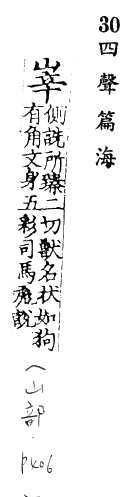 30四聲篇海
峷
側詵所臻二切獸名状如狗
有角文身五彩司馬彪說
(山部.
P406